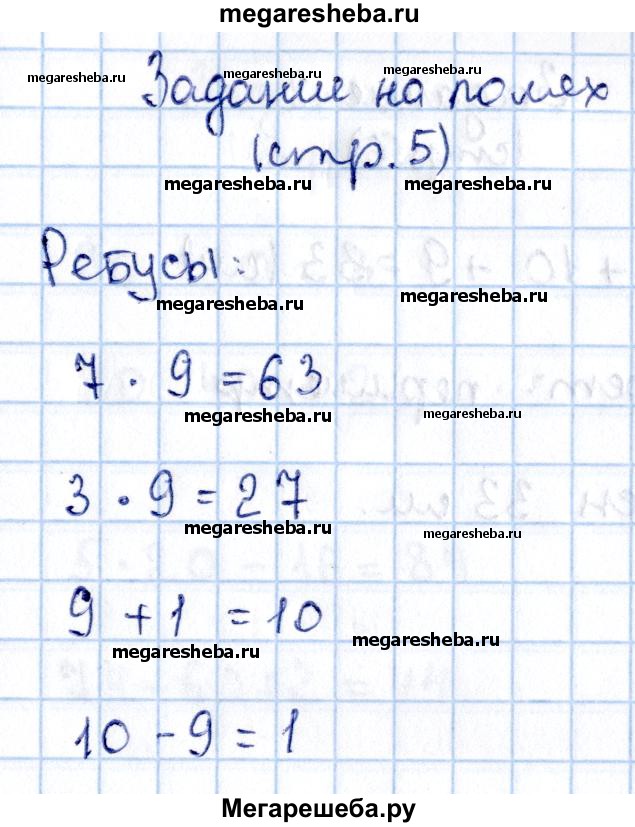 megaresheba.ru
megaresheba.ru megaresheba.ru megaresheba.ru
Задание на полях
(стр. 5)
megaresheba.ru megaresheba.ru
Ребусы:
megaresheba.ru megaresheba.ru
7 · 9 = 63
megaresheba.ru megaresheba.ru
3 · 9 = 27
megaresheba.ru megaresheba.ru
9 + 1 = 10
megaresheba.ru megaresheba.ru
10 - 9 = 1
Мегарешеба.ру